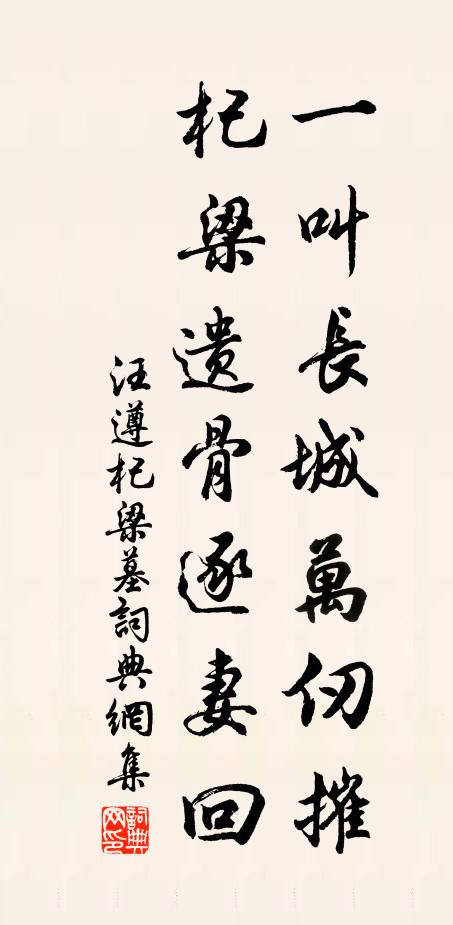 一叫長城萬仞摧
杞梁遺骨逐妻回
汪遵杞梁墓詞典網集
詞典網印